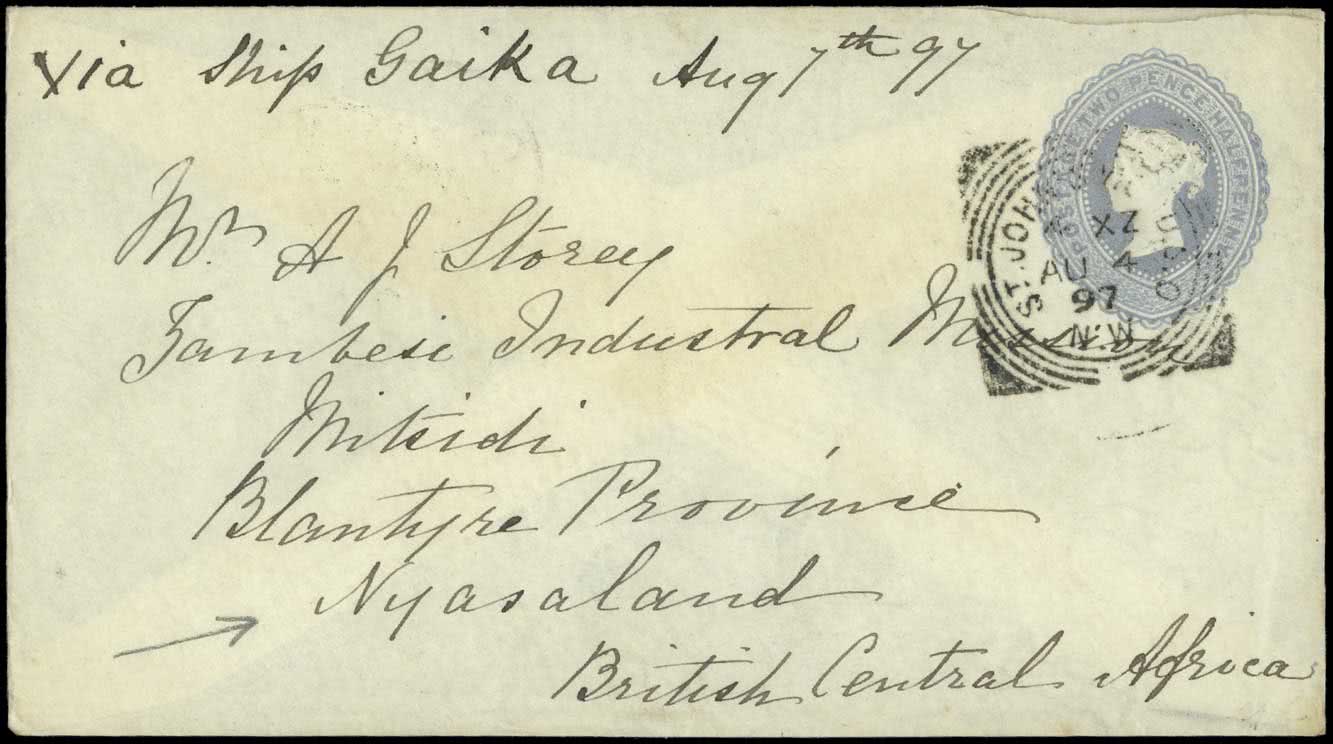 Via Ship Gaika Aug 7th 97
POSTAGE TWO PENCE HALFPENNY
ST. JOHN'S
XZ
AU 4
97
N.W
Mr. A J Storey
Zambesi Industral Mission
Mitsidi
Blantyre Province
Nyasaland
British Central Africa